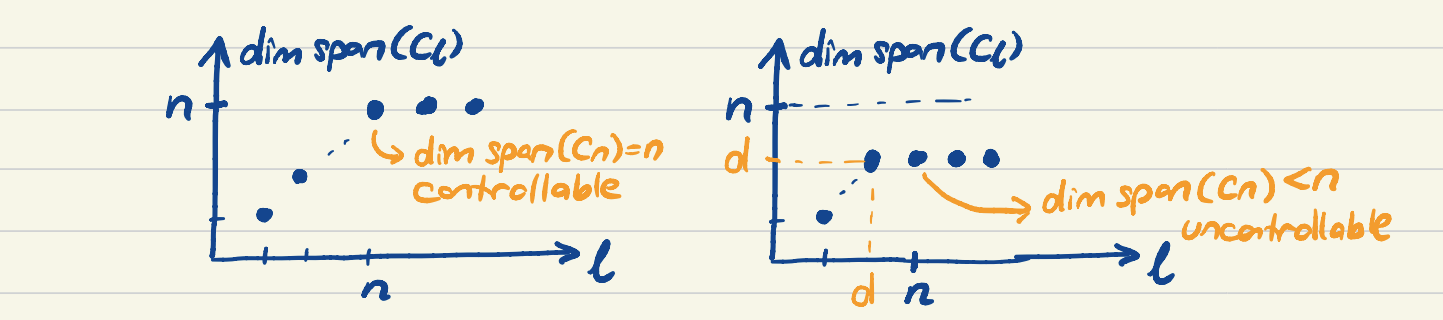 dim span(Cℓ)
n
dim span(Cn)=n
controllable
n
ℓ
dim span(Cℓ)
n
d
dim span(Cn)<n
uncontrollable
d n
ℓ